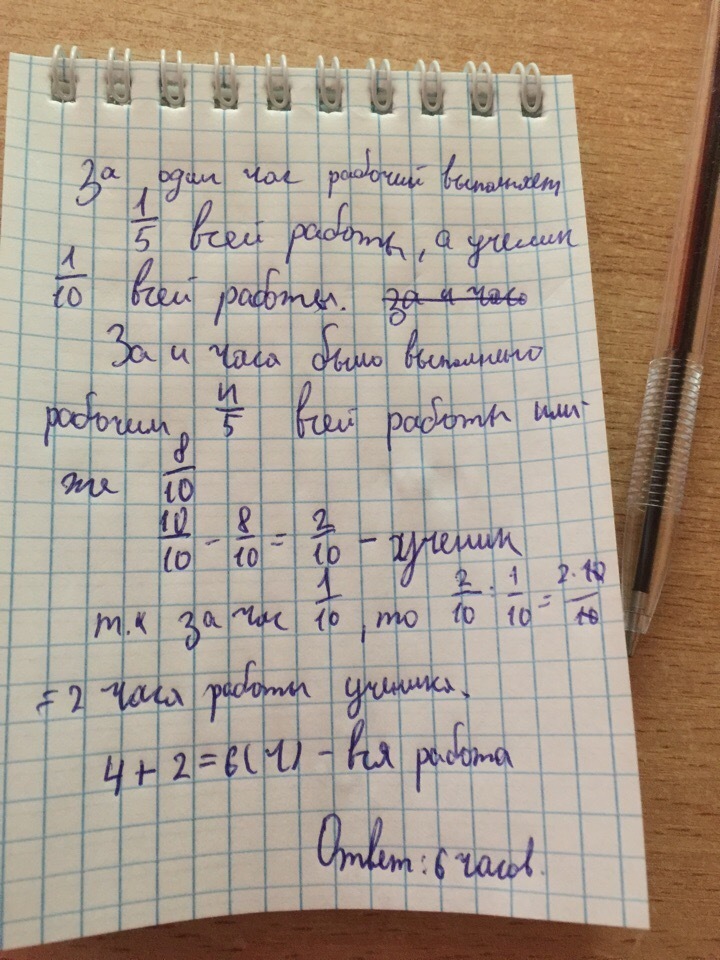 За один час рабочий выполняет
1/5 всей работы, а ученик
1/10 всей работы. за 4 часа
За 4 часа было выполнено
рабочим 4/5 всей работы или
же 8/10
10/10 - 8/10 = 2/10 - ученик
т.к за час 1/10, то 2/10 : 1/10 = 2·10/10
= 2 часа работы ученика.
4 + 2 = 6 (ч) - вся работа
Ответ: 6 часов.